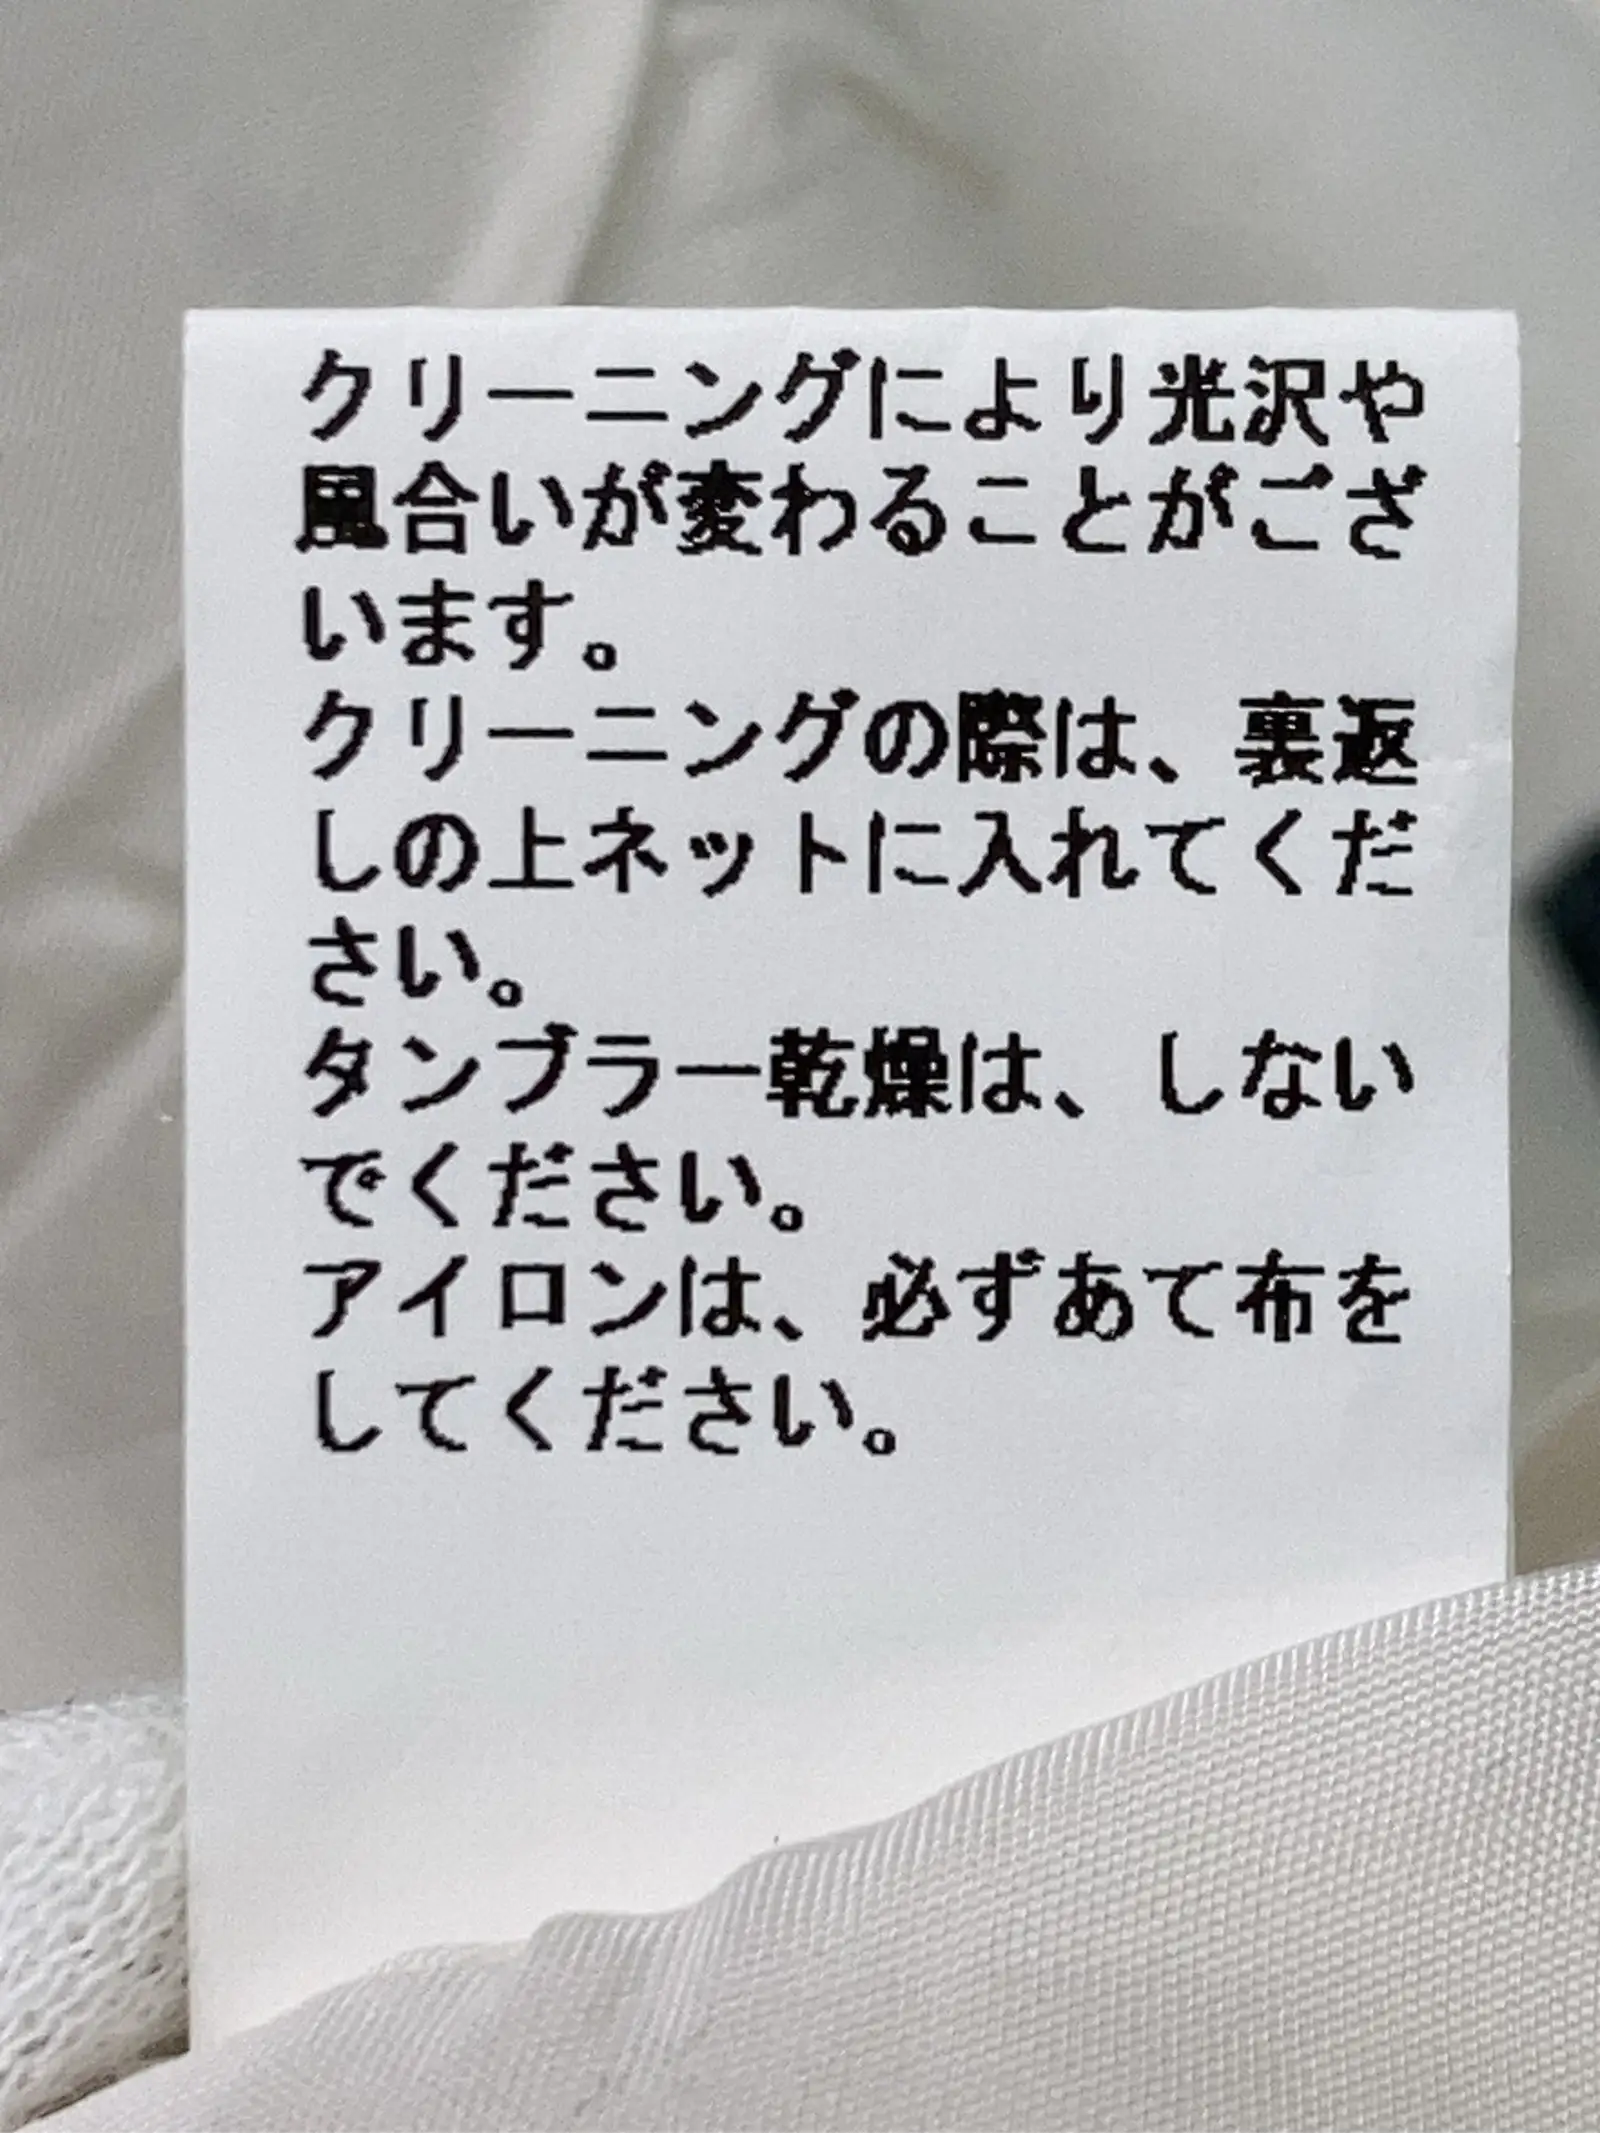 クリーニングにより光沢や
風合いが変わることがござ
います。
クリーニングの際は、裏返
しの上ネットに入れてくだ
さい。
タンブラー乾燥は、しない
でください。
アイロンは、必ずあて布を
してください。